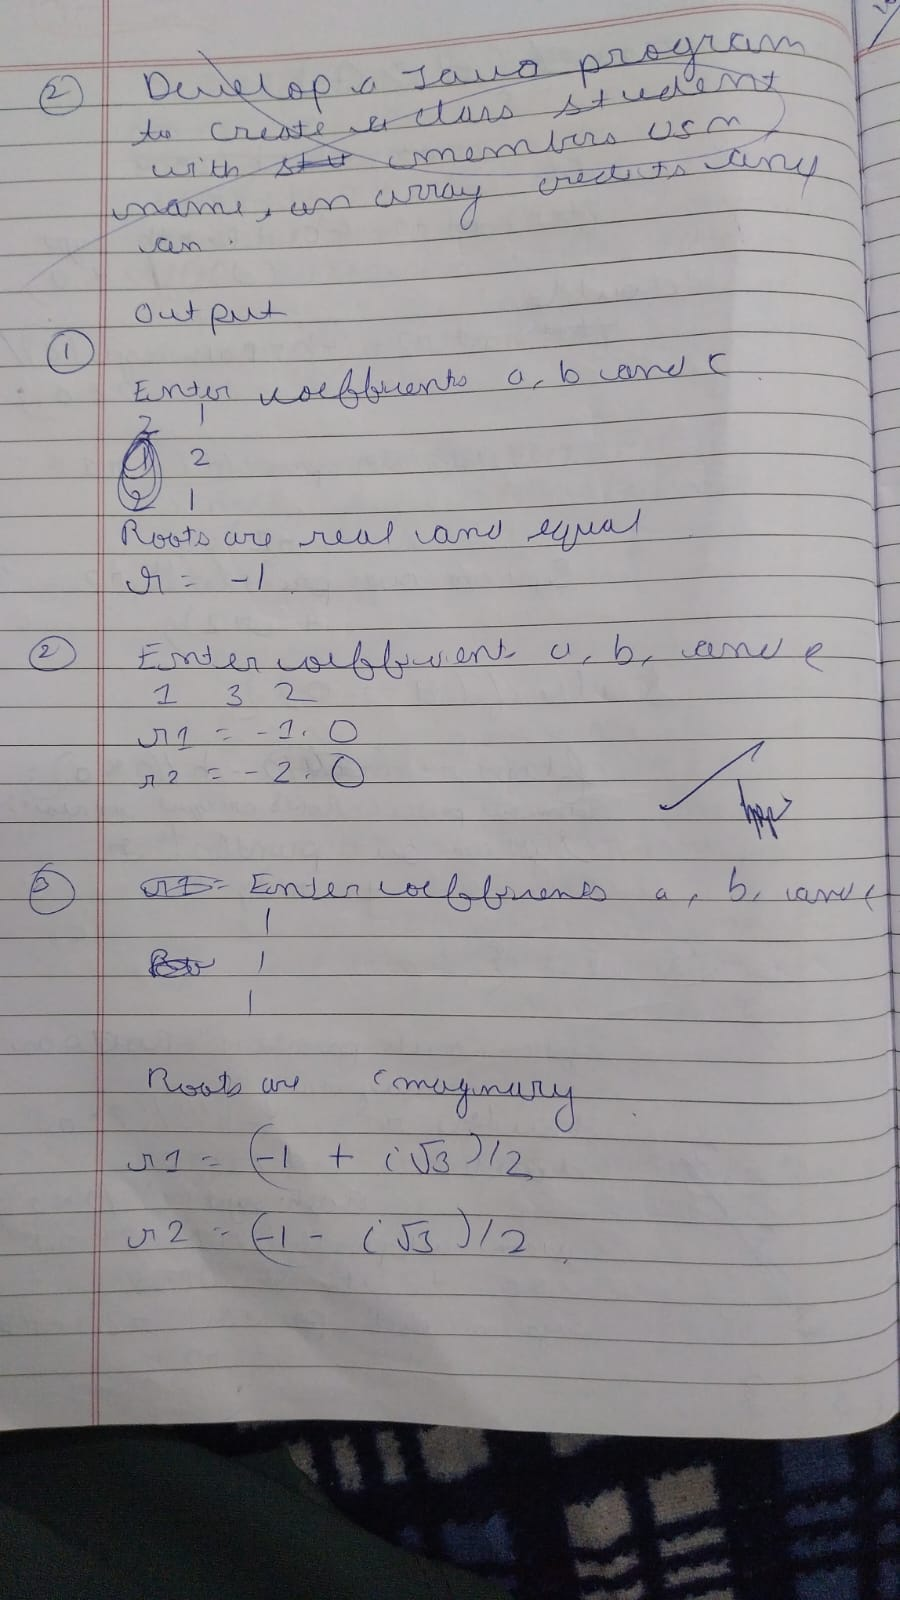 ② Develop a Java program
to create a class student
with stu members usn
name, an array credits any
an.
Output
①
Enter coefficients a, b and c
2 1
1 2
2 1
Roots are real and equal
r = -1
② Enter coefficient a, b, and c
1 3 2
r1 = -1.0
r2 = -2.0
③ r1= Enter coefficients a, b, and c
1
1
1
Roots are imaginary
r1 = (-1 + i√3)/2
r2 = (-1 - i√3)/2